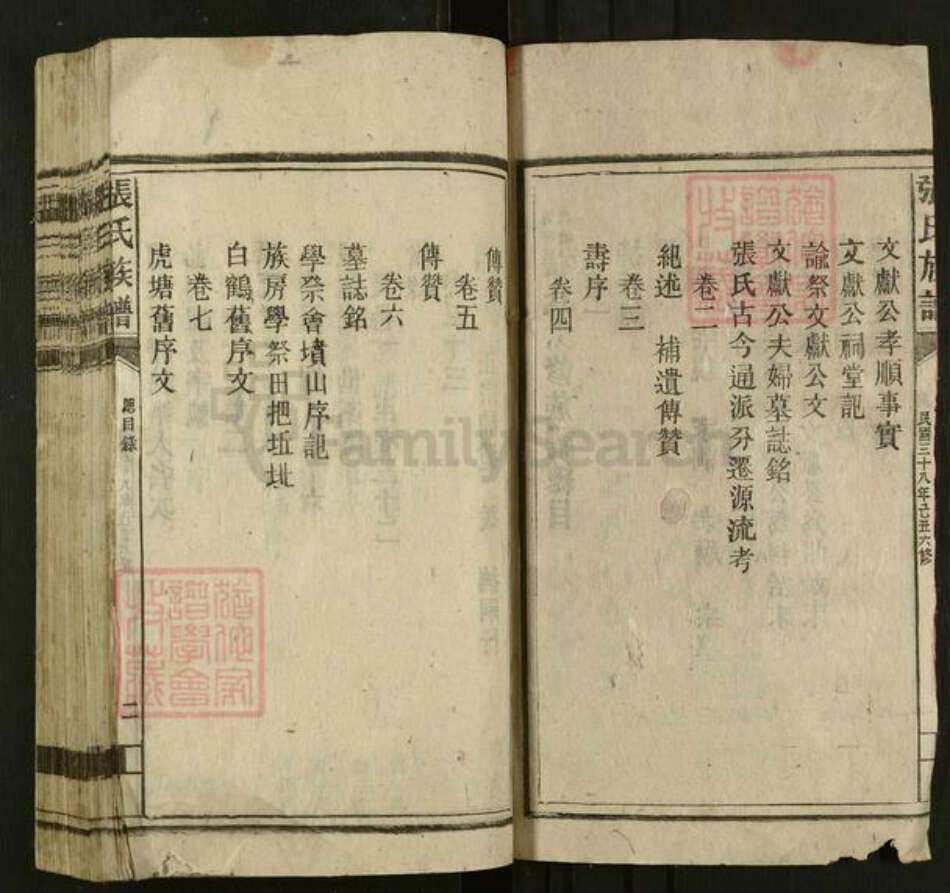 張氏族譜
民國三十八年己丑六修
文獻公孝順事實
文獻公祠堂記
諭祭文獻公文
文獻公夫婦墓誌銘
張氏古今通派分遷源流考
卷二
紀述 補遺傳贊
卷三
壽序
卷四
傳贊
卷五
傳贊
卷六
墓誌銘
學祭會墳山序記
族房學祭田把坵坵
白鶴舊序文
卷七
虎塘舊序文
張氏族譜
總目錄
二
FamilySearch